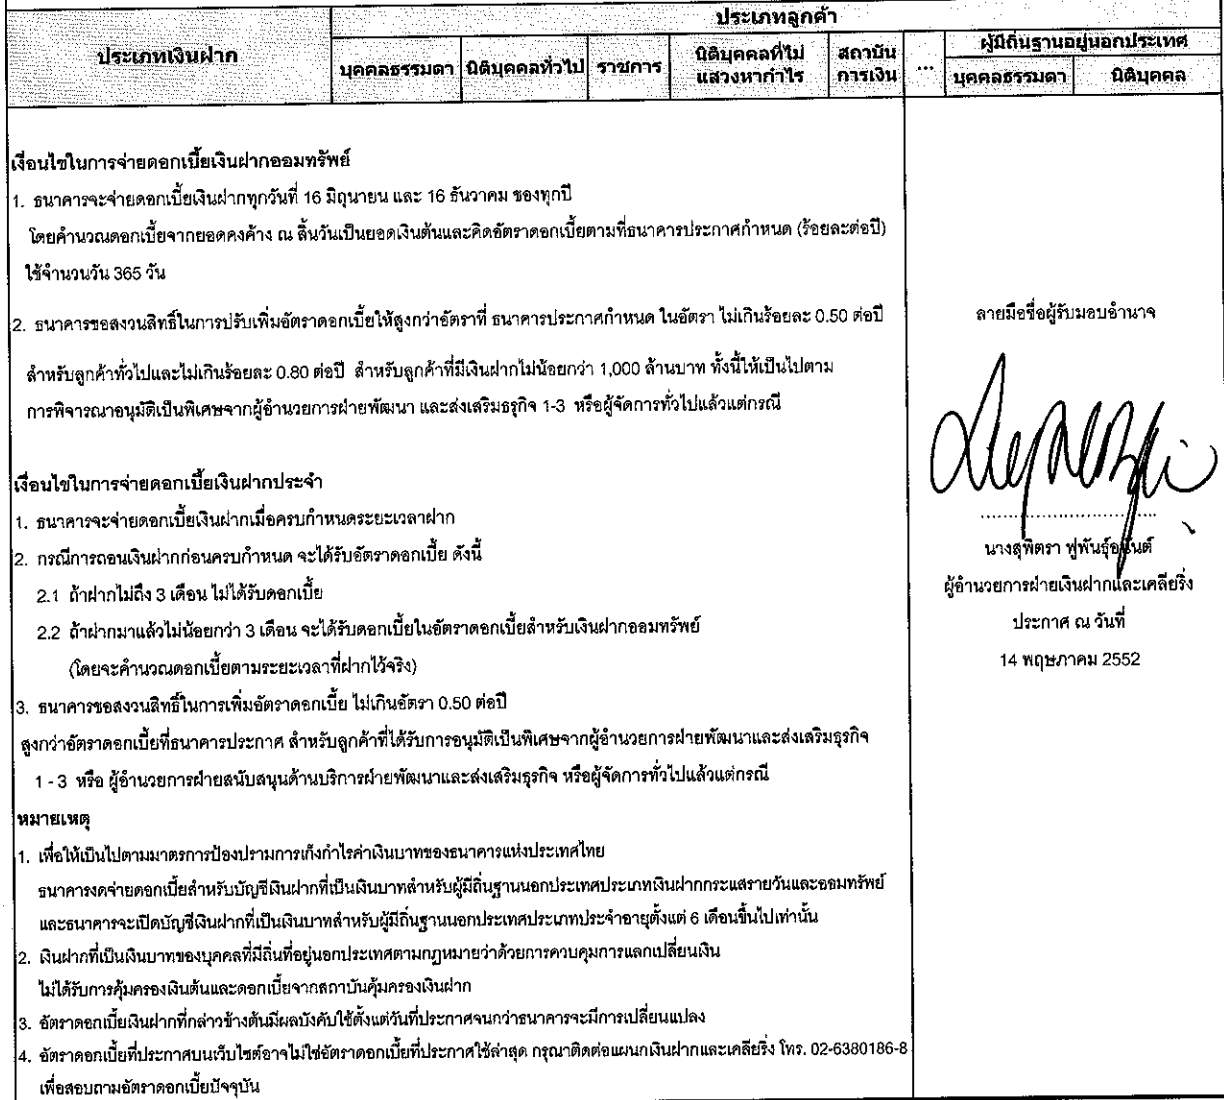 ประเภทลูกค้า
ประเภทเงินฝาก
ผู้มีถิ่นฐานอยู่นอกประเทศ
บุคคลธรรมดา นิติบุคคลทั่วไป ราชการ นิติบุคคลที่ไม่แสวงหากำไร สถาบันการเงิน ... บุคคลธรรมดา นิติบุคคล
เงื่อนไขในการจ่ายดอกเบี้ยเงินฝากออมทรัพย์
1. ธนาคารจะจ่ายดอกเบี้ยเงินฝากทุกวันที่ 16 มิถุนายน และ 16 ธันวาคม ของทุกปี
โดยคำนวณดอกเบี้ยจากยอดคงค้าง ณ สิ้นวันเป็นยอดเงินต้นและคิดอัตราดอกเบี้ยตามที่ธนาคารประกาศกำหนด (ร้อยละต่อปี)
ใช้จำนวนวัน 365 วัน
2. ธนาคารขอสงวนสิทธิ์ในการปรับเพิ่มอัตราดอกเบี้ยให้สูงกว่าอัตราที่ ธนาคารประกาศกำหนด ในอัตรา ไม่เกินร้อยละ 0.50 ต่อปี
สำหรับลูกค้าทั่วไปและไม่เกินร้อยละ 0.80 ต่อปี สำหรับลูกค้าที่มีเงินฝากไม่น้อยกว่า 1,000 ล้านบาท ทั้งนี้ให้เป็นไปตาม
การพิจารณาอนุมัติเป็นพิเศษจากผู้อำนวยการฝ่ายพัฒนา และส่งเสริมธุรกิจ 1-3 หรือผู้จัดการทั่วไปแล้วแต่กรณี
เงื่อนไขในการจ่ายดอกเบี้ยเงินฝากประจำ
1. ธนาคารจะจ่ายดอกเบี้ยเงินฝากเมื่อครบกำหนดระยะเวลาฝาก
2. กรณีการถอนเงินฝากก่อนครบกำหนด จะได้รับอัตราดอกเบี้ย ดังนี้
2.1 ถ้าฝากไม่ถึง 3 เดือน ไม่ได้รับดอกเบี้ย
2.2 ถ้าฝากมาแล้วไม่น้อยกว่า 3 เดือน จะได้รับดอกเบี้ยในอัตราดอกเบี้ยสำหรับเงินฝากออมทรัพย์
(โดยจะคำนวณดอกเบี้ยตามระยะเวลาที่ฝากไว้จริง)
3. ธนาคารขอสงวนสิทธิ์ในการเพิ่มอัตราดอกเบี้ย ไม่เกินอัตรา 0.50 ต่อปี
สูงกว่าอัตราดอกเบี้ยที่ธนาคารประกาศ สำหรับลูกค้าที่ได้รับการอนุมัติเป็นพิเศษจากผู้อำนวยการฝ่ายพัฒนาและส่งเสริมธุรกิจ
1 - 3 หรือ ผู้อำนวยการฝ่ายสนับสนุนด้านบริการฝ่ายพัฒนาและส่งเสริมธุรกิจ หรือผู้จัดการทั่วไปแล้วแต่กรณี
หมายเหตุ
1. เพื่อให้เป็นไปตามมาตรการป้องปรามการเก็งกำไรค่าเงินบาทของธนาคารแห่งประเทศไทย
ธนาคารงดจ่ายดอกเบี้ยสำหรับบัญชีเงินฝากที่เป็นเงินบาทสำหรับผู้มีถิ่นฐานนอกประเทศประเภทเงินฝากกระแสรายวันและออมทรัพย์
และธนาคารจะเปิดบัญชีเงินฝากที่เป็นเงินบาทสำหรับผู้มีถิ่นฐานนอกประเทศประเภทประจำอายุตั้งแต่ 6 เดือนขึ้นไปเท่านั้น
2. เงินฝากที่เป็นเงินบาทของบุคคลที่มีถิ่นที่อยู่นอกประเทศตามกฎหมายว่าด้วยการควบคุมการแลกเปลี่ยนเงิน
ไม่ได้รับการคุ้มครองเงินต้นและดอกเบี้ยจากสถาบันคุ้มครองเงินฝาก
3. อัตราดอกเบี้ยเงินฝากที่กล่าวข้างต้นมีผลบังคับใช้ตั้งแต่วันที่ประกาศจนกว่าธนาคารจะมีการเปลี่ยนแปลง
4. อัตราดอกเบี้ยที่ประกาศบนเว็บไซต์อาจไม่ใช่อัตราดอกเบี้ยที่ประกาศใช้ล่าสุด กรุณาติดต่อแผนกเงินฝากและเคลียริ่ง โทร. 02-6380186-8
เพื่อสอบถามอัตราดอกเบี้ยปัจจุบัน
ลายมือชื่อผู้รับมอบอำนาจ
นางสุพิตรา ฟูพันธุ์อนันต์
ผู้อำนวยการฝ่ายเงินฝากและเคลียริ่ง
ประกาศ ณ วันที่
14 พฤษภาคม 2552